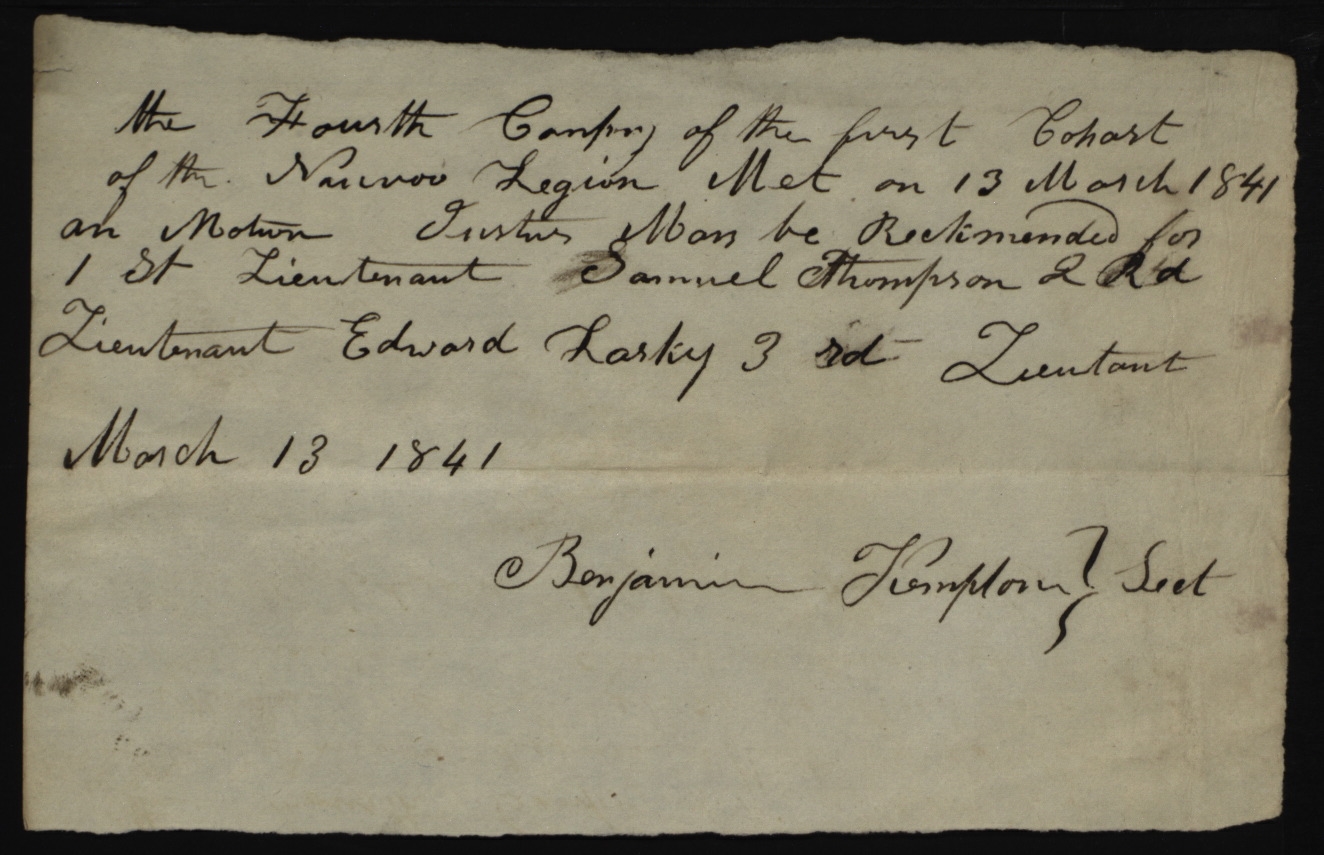 the Fourth Conpny of the first Cohort
of the Nauvoo Legion Met on 13 March 1841
on Motion Justus Mors be Reckimended for
1 St Lieutenant Samuel Thompson 2 Rd
Lieutenant Edward Larky 3 rd Lieutant
March 13 1841
Benjamin Kempton } Sect